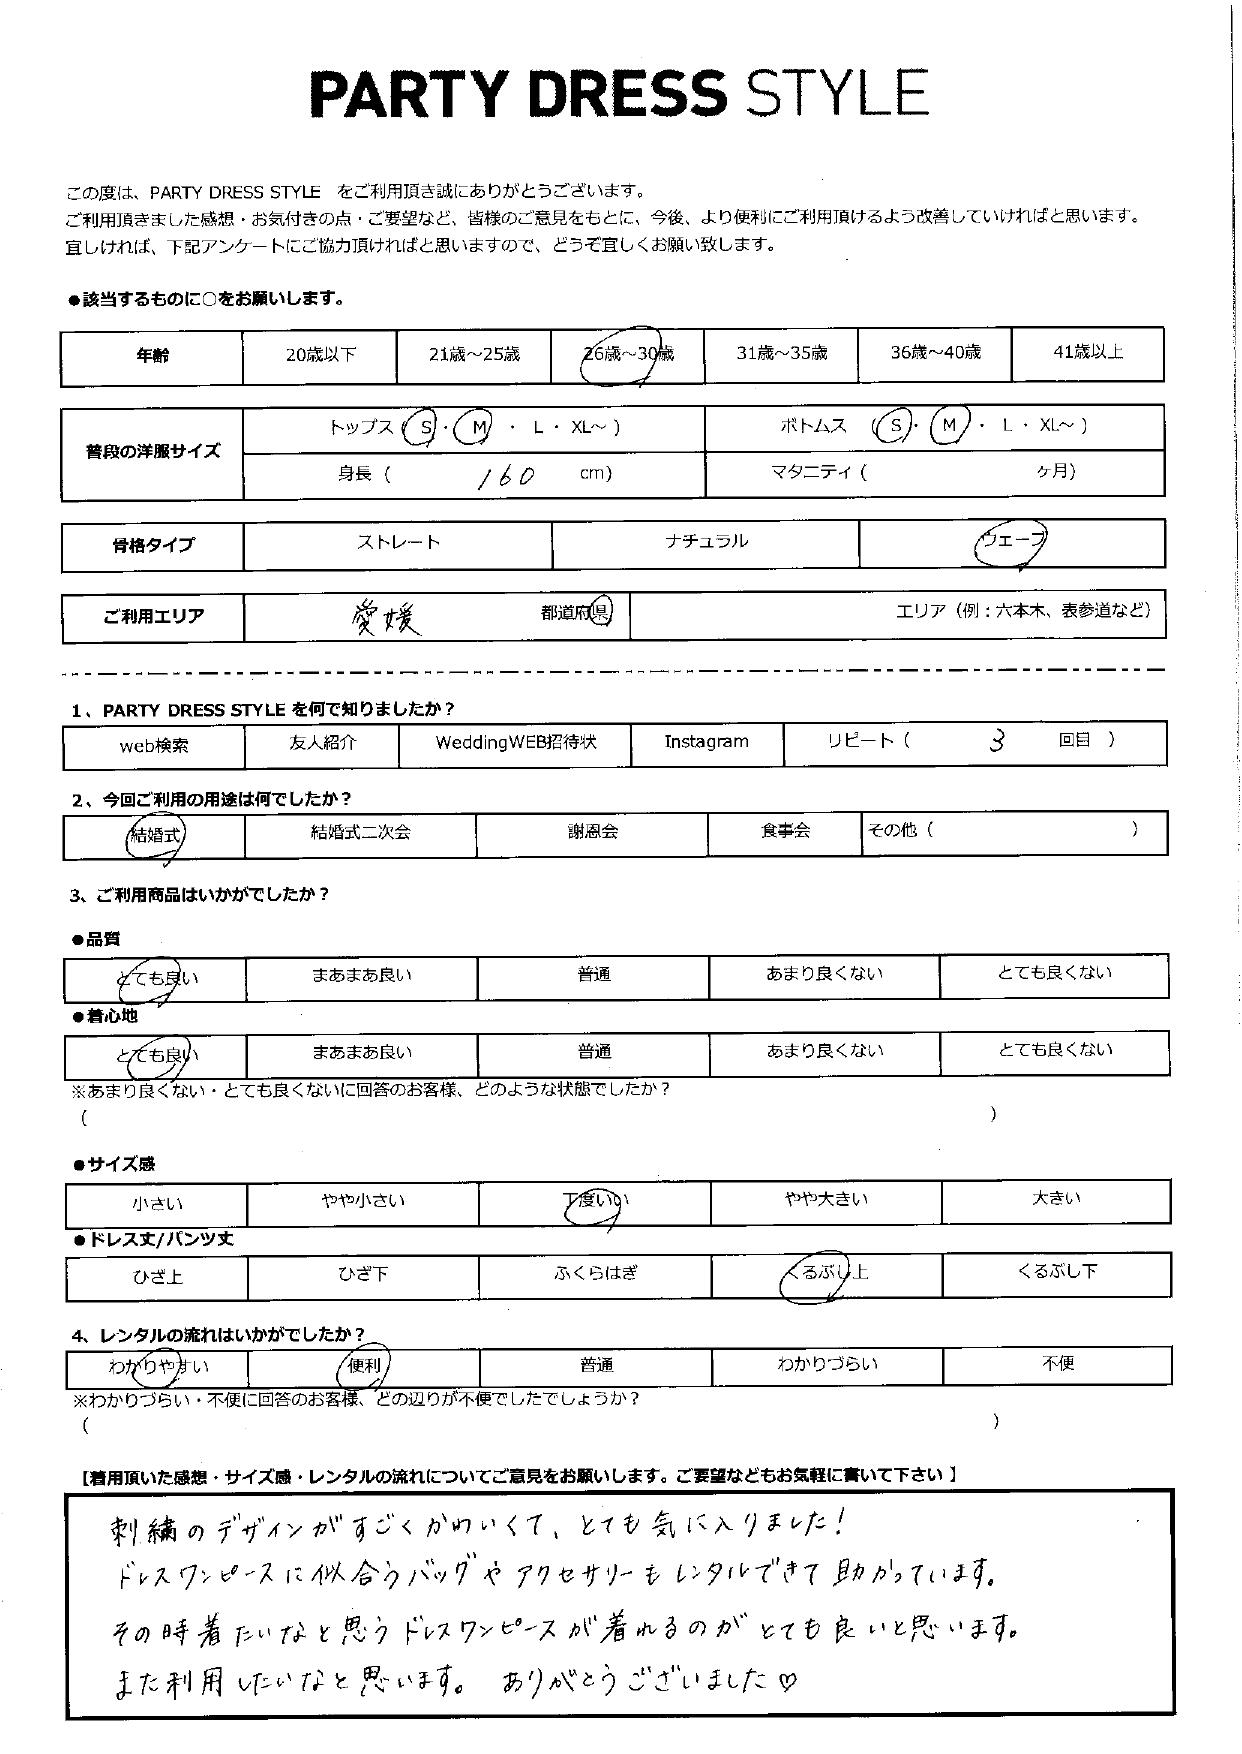 PARTY DRESS STYLE
この度は、PARTY DRESS STYLE をご利用頂き誠にありがとうございます。
ご利用頂きました感想・お気付きの点・ご要望など、皆様のご意見をもとに、今後、より便利にご利用頂けるよう改善していければと思います。
宜しければ、下記アンケートにご協力頂ければと思いますので、どうぞ宜しくお願い致します。
●該当するものに○をお願いします。
年齢 20歳以下 21歳～25歳 26歳～30歳 31歳～35歳 36歳～40歳 41歳以上
普段の洋服サイズ トップス (S・M ・ L ・ XL～ ) ボトムス (S・ M ・ L ・ XL～ )
身長 ( 160 cm) マタニティ ( ケ月)
骨格タイプ ストレート ナチュラル ウェーブ
ご利用エリア 愛媛 都道府県 エリア（例：六本木、表参道など）
1、PARTY DRESS STYLE を何で知りましたか？
web検索 友人紹介 WeddingWEB招待状 Instagram リピート ( 3 回目 )
2、今回ご利用の用途は何でしたか？
結婚式 結婚式二次会 謝恩会 食事会 その他 ( )
3、ご利用商品はいかがでしたか？
●品質
とても良い まあまあ良い 普通 あまり良くない とても良くない
●着心地
とても良い まあまあ良い 普通 あまり良くない とても良くない
※あまり良くない・とても良くないに回答のお客様、どのような状態でしたか？
( )
●サイズ感
小さい やや小さい 丁度いい やや大きい 大きい
●ドレス丈/パンツ丈
ひざ上 ひざ下 ふくらはぎ くるぶし上 くるぶし下
4、レンタルの流れはいかがでしたか？
わかりやすい 便利 普通 わかりづらい 不便
※わかりづらい・不便に回答のお客様、どの辺りが不便でしたでしょうか？
( )
【着用頂いた感想・サイズ感・レンタルの流れについてご意見をお願いします。ご要望などもお気軽に書いて下さい 】
刺繍のデザインがすごくかわいくて、とても気に入りました！
ドレスワンピースに似合うバッグやアクセサリーもレンタルできて助かっています。
その時着たいなと思うドレスワンピースが着れるのがとても良いと思います。
また利用したいなと思います。 ありがとうございました♡